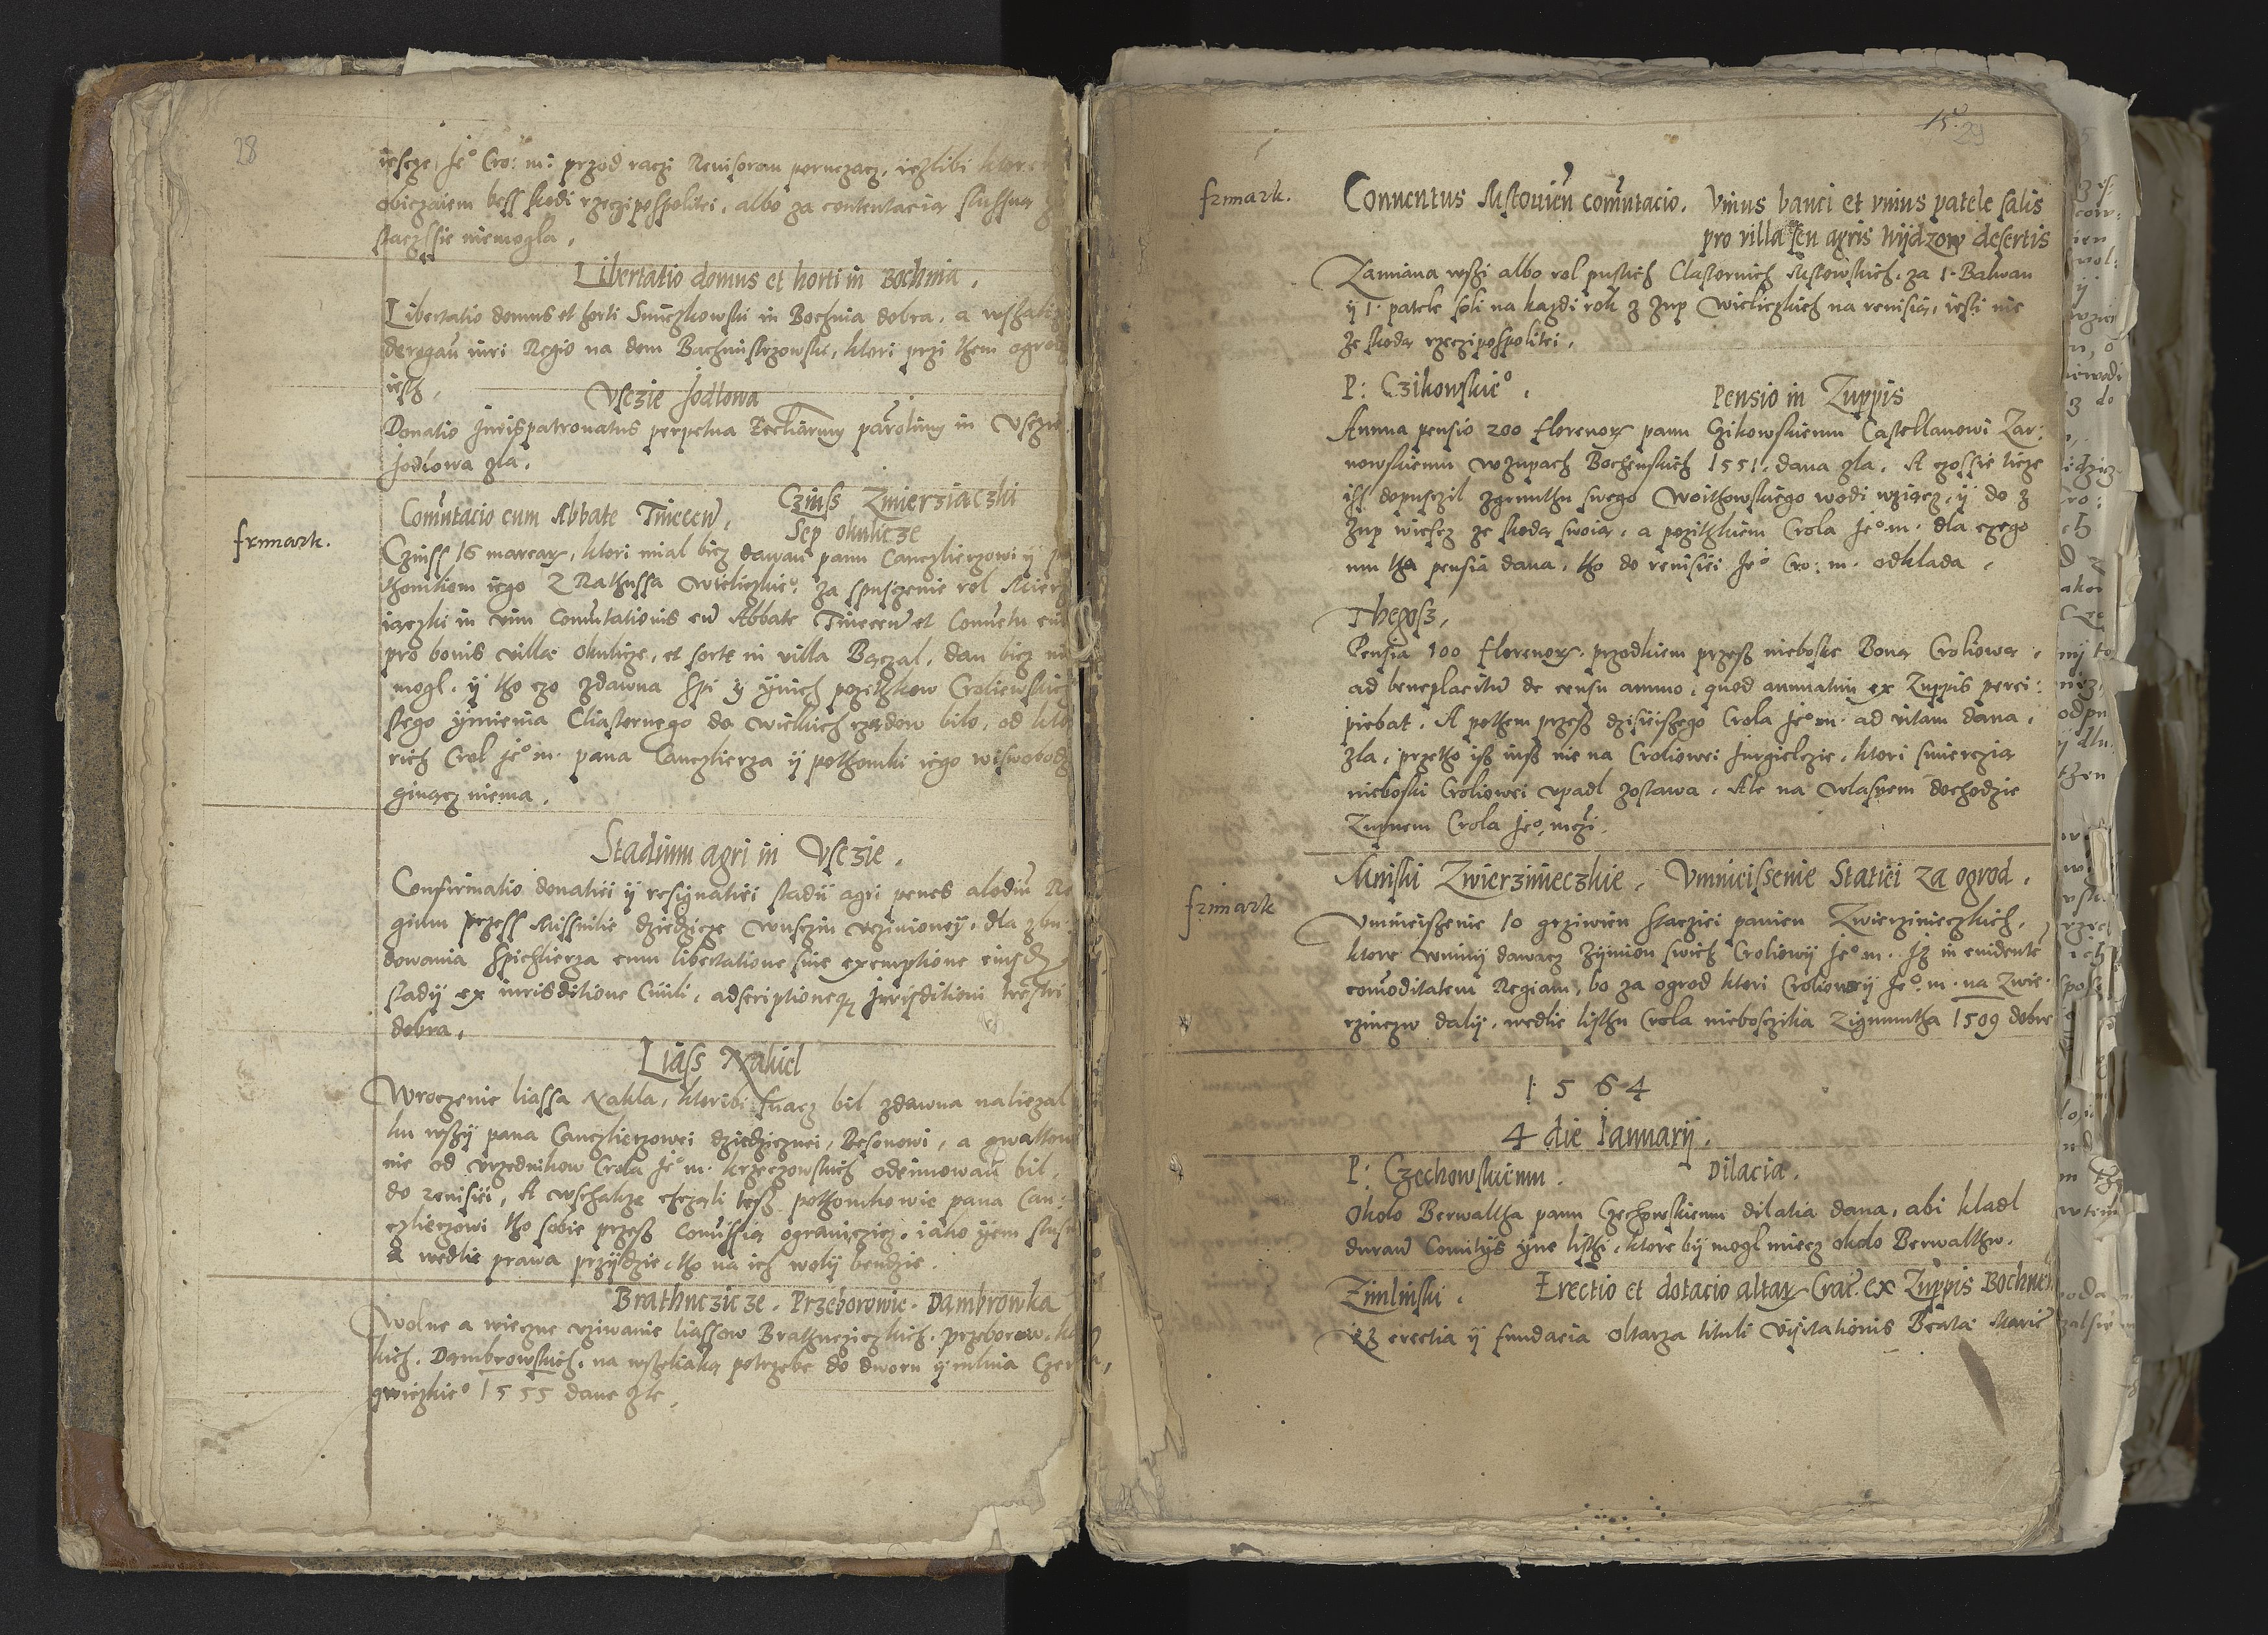 28
iescze Je° Cro: m: przod raczi Reuisorom poruczacz, iezlibi
obiczaiem bess skodi rzeczipospolitei, albo za contentacią slussną
staczssie niemogla,
Libertatio domus et horti in Bochnia.
Libertatio domus et horti Smiczkowski in Bochnia dobra, a wszakze
derogaũ iuri Regio na dom Bachmistrzowski, ktori przi them
iest,
Vsczie Jodlowa
Donatio Jurispatronatus perpetua in Vsczie
Jodlowa zla,
Czinss Zmierziaczki
Comutacio cum Abbate Tinecen̄,
Sep okulicze
frimark.
Czinss 16 marcar, ktori mial bicz dawan panu Canczlierzowi y
thomkom iego Z Rathussa Wieliczkie°. za spusczenie rol
iączki in uim Comutationis cũ Abbate Tinecen̄ et Conuetu
pro bonis villæ Okulicze, et sorte in villa Bączal, dan bicz
mogl. ÿ tho czo zdawna Spi y ÿnich pozithkow Croliewskich
stego ÿmienia Cliasternego do Wielkich rządow bilo, od
rich Crol Je° m. pana Canczlierza ÿ pothomki iego
ginącz niema,
Stadium agri in Vsczie.
Confirmatio donatiei ÿ resignatiei stadÿ agri penes alodiũ
gium przess Missnike dziedzicze Wusczin vczinioneÿ, dla zbu:
dowania Spichlierza cum libertatione siue exemptione
stadÿ ex iurisditione Ciuili, adscriptioneqʒ Jurisditioni
dobra,
Liass Nakiel
Wroczenie liassa Nakla, ktoribi snacz bil zdawna naliezal
ku wszÿ pana Canczlierzowei dziedzicznei, Besonowi, a
nie od vrzednikow Crola Je° m. krzeczowskich odeimowaũ bil,
do reuisiei, A wschakze chczeli tesz pothomkowie pana Can:
czlierzowi tho sobie przesz Comissią ograniczicz, iako ÿem
A wedlie prawa przÿdzie, tho na ich woly bendzie.
Brathuczicze. Przeborowie. Dambrowka
Wolne a wieczne vziwanie liassow Brathucziczkich. przeborow
kich. Dambrowskich, na wszeliaką potrzebe do dworu ÿ mlina
1555 dane zle,
15. 29
frimark.
Conuentus Mstouien̄ comutacio. Vnius banci et vnius patele salis
pro villa seu agris Wijdzow desertis
Zamiana wszi albo rol pustich Clasternich Mstowskich. za 1. Balwan
ÿ 1. patele soli na kazdi rok z Zup Wieliczkich na reuisią, iesli nie
ze skodą rzeczipospolitei,
P: Czikowskie°.
Pensio in Zuppis
Annua pensio 200 florenor panu Czikowskiemu Castellanowi Zar:
nowskiemu wzupach Bochenskich 1551. dana zla, A czossie ticze
isz dopusczil zgrunthu swego Woithowskiego wodi wziącz, ÿ do z
Zup wiescz ze skodą swoią, a pozithkiem Crola Je° m. dla czego
mu tha pensia dana, tho do reuisiei Je° Cro: m. odklada,
Thegosz,
Pensia 100 florenor. przodkiem przesz nieboske Boną Croliową
ad beneplacitũ de censu annuo, quod annuatim ex Zuppis perci:
piebat. A pothem przesz dzisieiszego Crola Je° m. ad uitam dana,
zla, przetho isz iusz nie na Croliowei Jurgielczie, ktori smiercią
nieboski Croliowei vpadl zostawa. Ale na wlasnem dochodzie
Zupnem Crola Je° mczi.
frimark
Mniski Zwierzinieczkie. Vmnieissenie Statiei za ogrod.
Vmnieiszenie 10 grziwien Stacziei panien Zwierzinieczkich,
ktore winny dawacz Zÿmion swich Croliowÿ Je° m. Isz in euidentē
comoditatem Regiam, bo za ogrod ktori Croliowÿ Je° m. na Zwie.
rzinczu dalÿ. wedlie listhu Crola niebosczika Zigmuntha 1509 dobre
1564
4 die Januarij.
P: Czechowskiemu.
Dilacia.
Okolo Berwaltha panu Czechowskiemu dilatia dana, abi kladl
duran̄ Comitijs ÿne listhi, ktore bÿ mogl miecz okolo Berwalthu.
Zimlinski.
Erectio et dotacio altar Crac̄. ex Zuppis Bochnen̄
erectia ÿ fundacia Oltarza tituli Visitationis Beatæ Mariæ